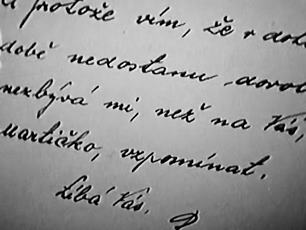 a protože vím, že v
době nedostanu
nezbývá mi, než na Vás,
Martičko, vzpomínat.
Líbá Vás.